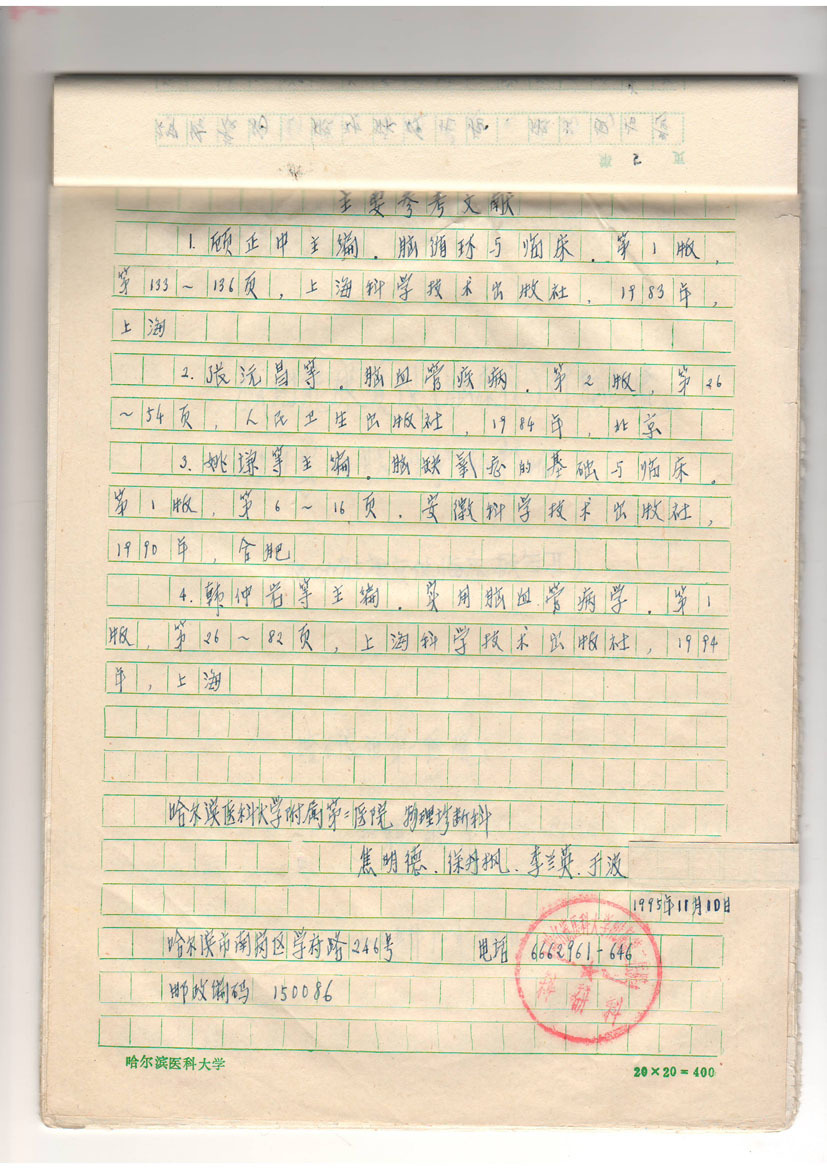 页
主要参考文献
1. 顾正中主编. 脑循环与临床. 第1版,
第133~136页, 上海科学技术出版社, 1983年,
上海
2. 张沅昌等. 脑血管疾病. 第2版, 第26
~54页, 人民卫生出版社, 1984年, 北京
3. 姚璟等主编. 脑缺氧症的基础与临床.
第1版, 第6~16页. 安徽科学技术出版社,
1990年, 合肥
4. 韩仲岩等主编. 实用脑血管病学. 第1
版. 第26~82页, 上海科学技术出版社, 1994
年, 上海
哈尔滨医科大学附属第二医院 物理诊断科
焦明德、徐丹枫、李兰英、于波
1995年11月10日
哈尔滨市南岗区学府路246号 电话 6662961-646
邮政编码 150086
科研科
哈尔滨医科大学
20×20=400